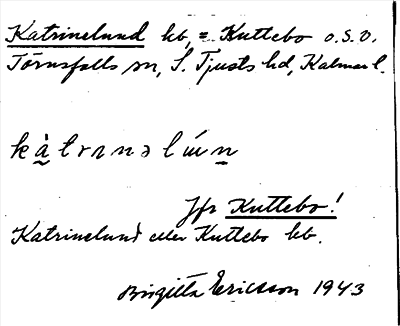 Katrinelund hb, = Kuttebo o.s.v.
Törnsfalls sn, S. Tjusts hd, Kalmar l.
kàtrɪnəlún
Jfr Kuttebo!
Katrinelund eller Kuttebo hb.
Birgitta Ericsson 1943